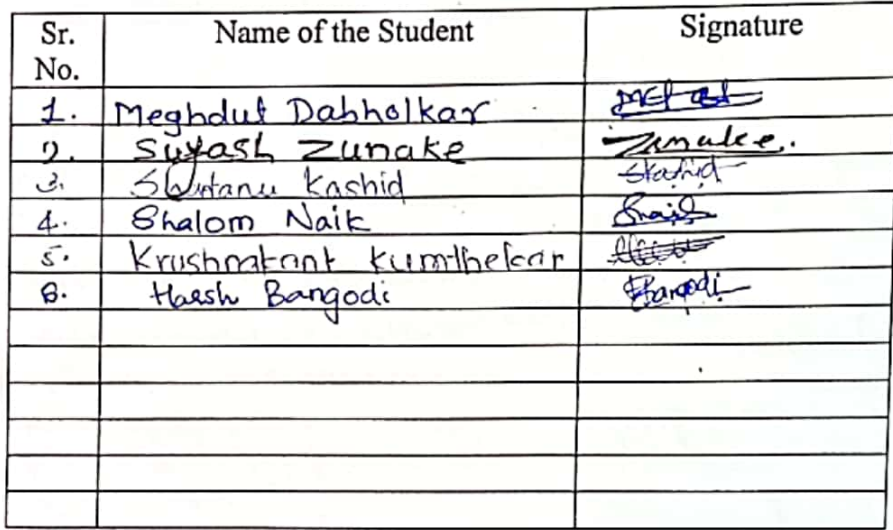 Sr. No. Name of the Student Signature
1. Meghdut Dabholkar
2. Suyash Zunake Zunake.
3. Shantanu Kashid SKashid
4. Shalom Naik SNaik
5. Krushnakant Kumthekar
6. Harsh Bangodi HBangodi